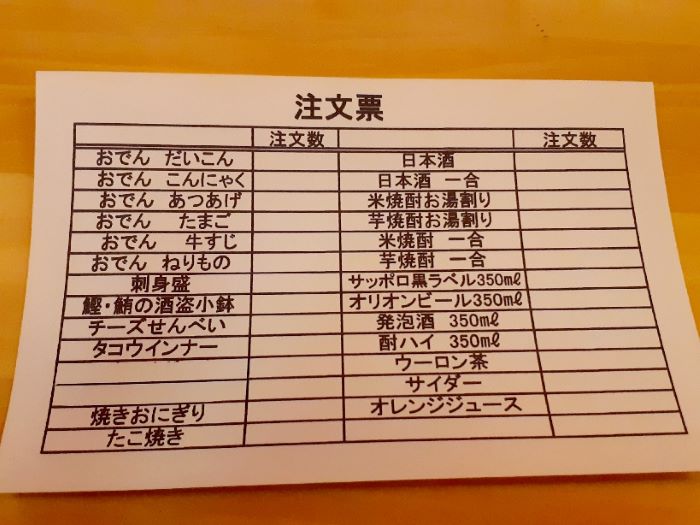 注文票
注文数 注文数
おでん だいこん 日本酒
おでん こんにゃく 日本酒 一合
おでん あつあげ 米焼酎お湯割り
おでん たまご 芋焼酎お湯割り
おでん 牛すじ 米焼酎 一合
おでん ねりもの 芋焼酎 一合
刺身盛 サッポロ黒ラベル350mℓ
鰹・鮪の酒盗小鉢 オリオンビール350mℓ
チーズせんべい 発泡酒 350mℓ
タコウインナー 酎ハイ 350mℓ
ウーロン茶
サイダー
焼きおにぎり オレンジジュース
たこ焼き